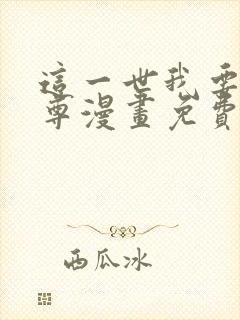 這一世我要
尊漫畫免費
西瓜冰